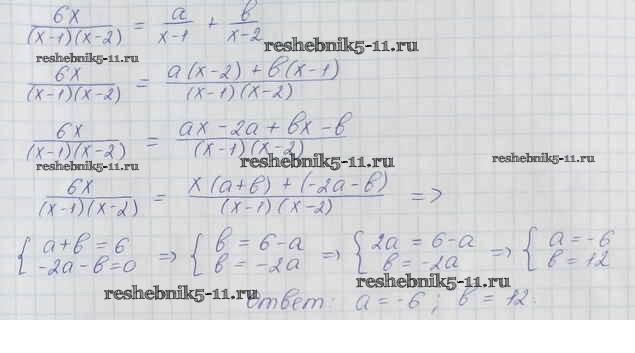 6x/((x-1)(x-2)) = a/(x-1) + b/(x-2)
reshebnik5-11.ru
reshebnik5-11.ru
6x/((x-1)(x-2)) = (a(x-2) + b(x-1))/((x-1)(x-2))
6x/((x-1)(x-2)) = (ax-2a+bx-b)/((x-1)(x-2))
reshebnik5-11.ru
reshebnik5-11.ru
reshebnik5-11.ru
6x/((x-1)(x-2)) = (x(a+b)+(-2a-b))/((x-1)(x-2)) =>
{ a+b=6 => { b=6-a => { 2a=6-a => { a=-6
-2a-b=0 b=-2a b=-2a b=12
reshebnik5-11.ru
reshebnik5-11.ru
ответ: a=-6; b=12.